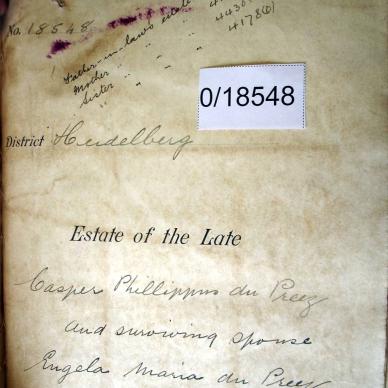 No. 18548
Father-in-laws estate
Mother " " "
Sister " " " 4178(6)
0/18548
District Heidelberg
Estate of the Late
Casper Phillippus du Preez
and surviving spouse
Engela Maria du Preez